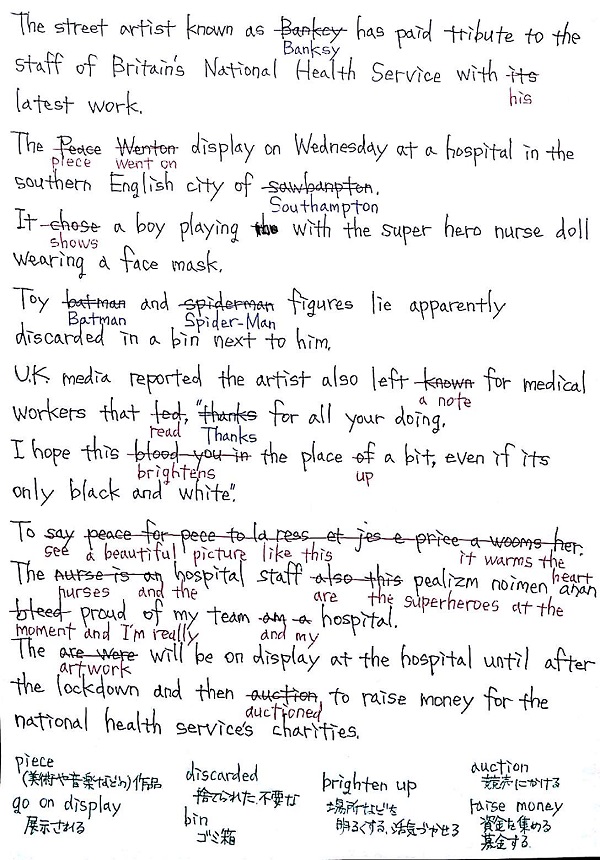 The street artist known as Bankcy has paid tribute to the
Banksy
staff of Britain's National Health Service with its
his
latest work.
The Peace Wenton display on Wednesday at a hospital in the
piece went on
southern English city of sawhanpton.
Southampton
It chose a boy playing the with the super hero nurse doll
shows
wearing a face mask.
Toy batman and spiderman figures lie apparently
Batman Spider-Man
discarded in a bin next to him.
U.K. media reported the artist also left known for medical
a note
workers that ted, "thanks for all your doing.
read Thanks
I hope this blood you in the place of a bit, even if its
brightens up
only black and white".
To say peace for pece to la ress et jes e price a wooms her.
see a beautiful picture like this it warms the
The nurse is an hospital staff also this pealizm noimen anan
nurses and the are the superheroes at the heart
bleed proud of my team am a hospital.
moment and I'm really and my
The are were will be on display at the hospital until after
artwork
the lockdown and then auction, to raise money for the
auctioned
national health service's charities.
piece
(美術や音楽などの)作品
go on display
展示される
discarded
捨てられた、不要な
bin
ゴミ箱
brighten up
場所などを
明るくする、活気づかせる
auction
競売にかける
raise money
資金を集める
募金する